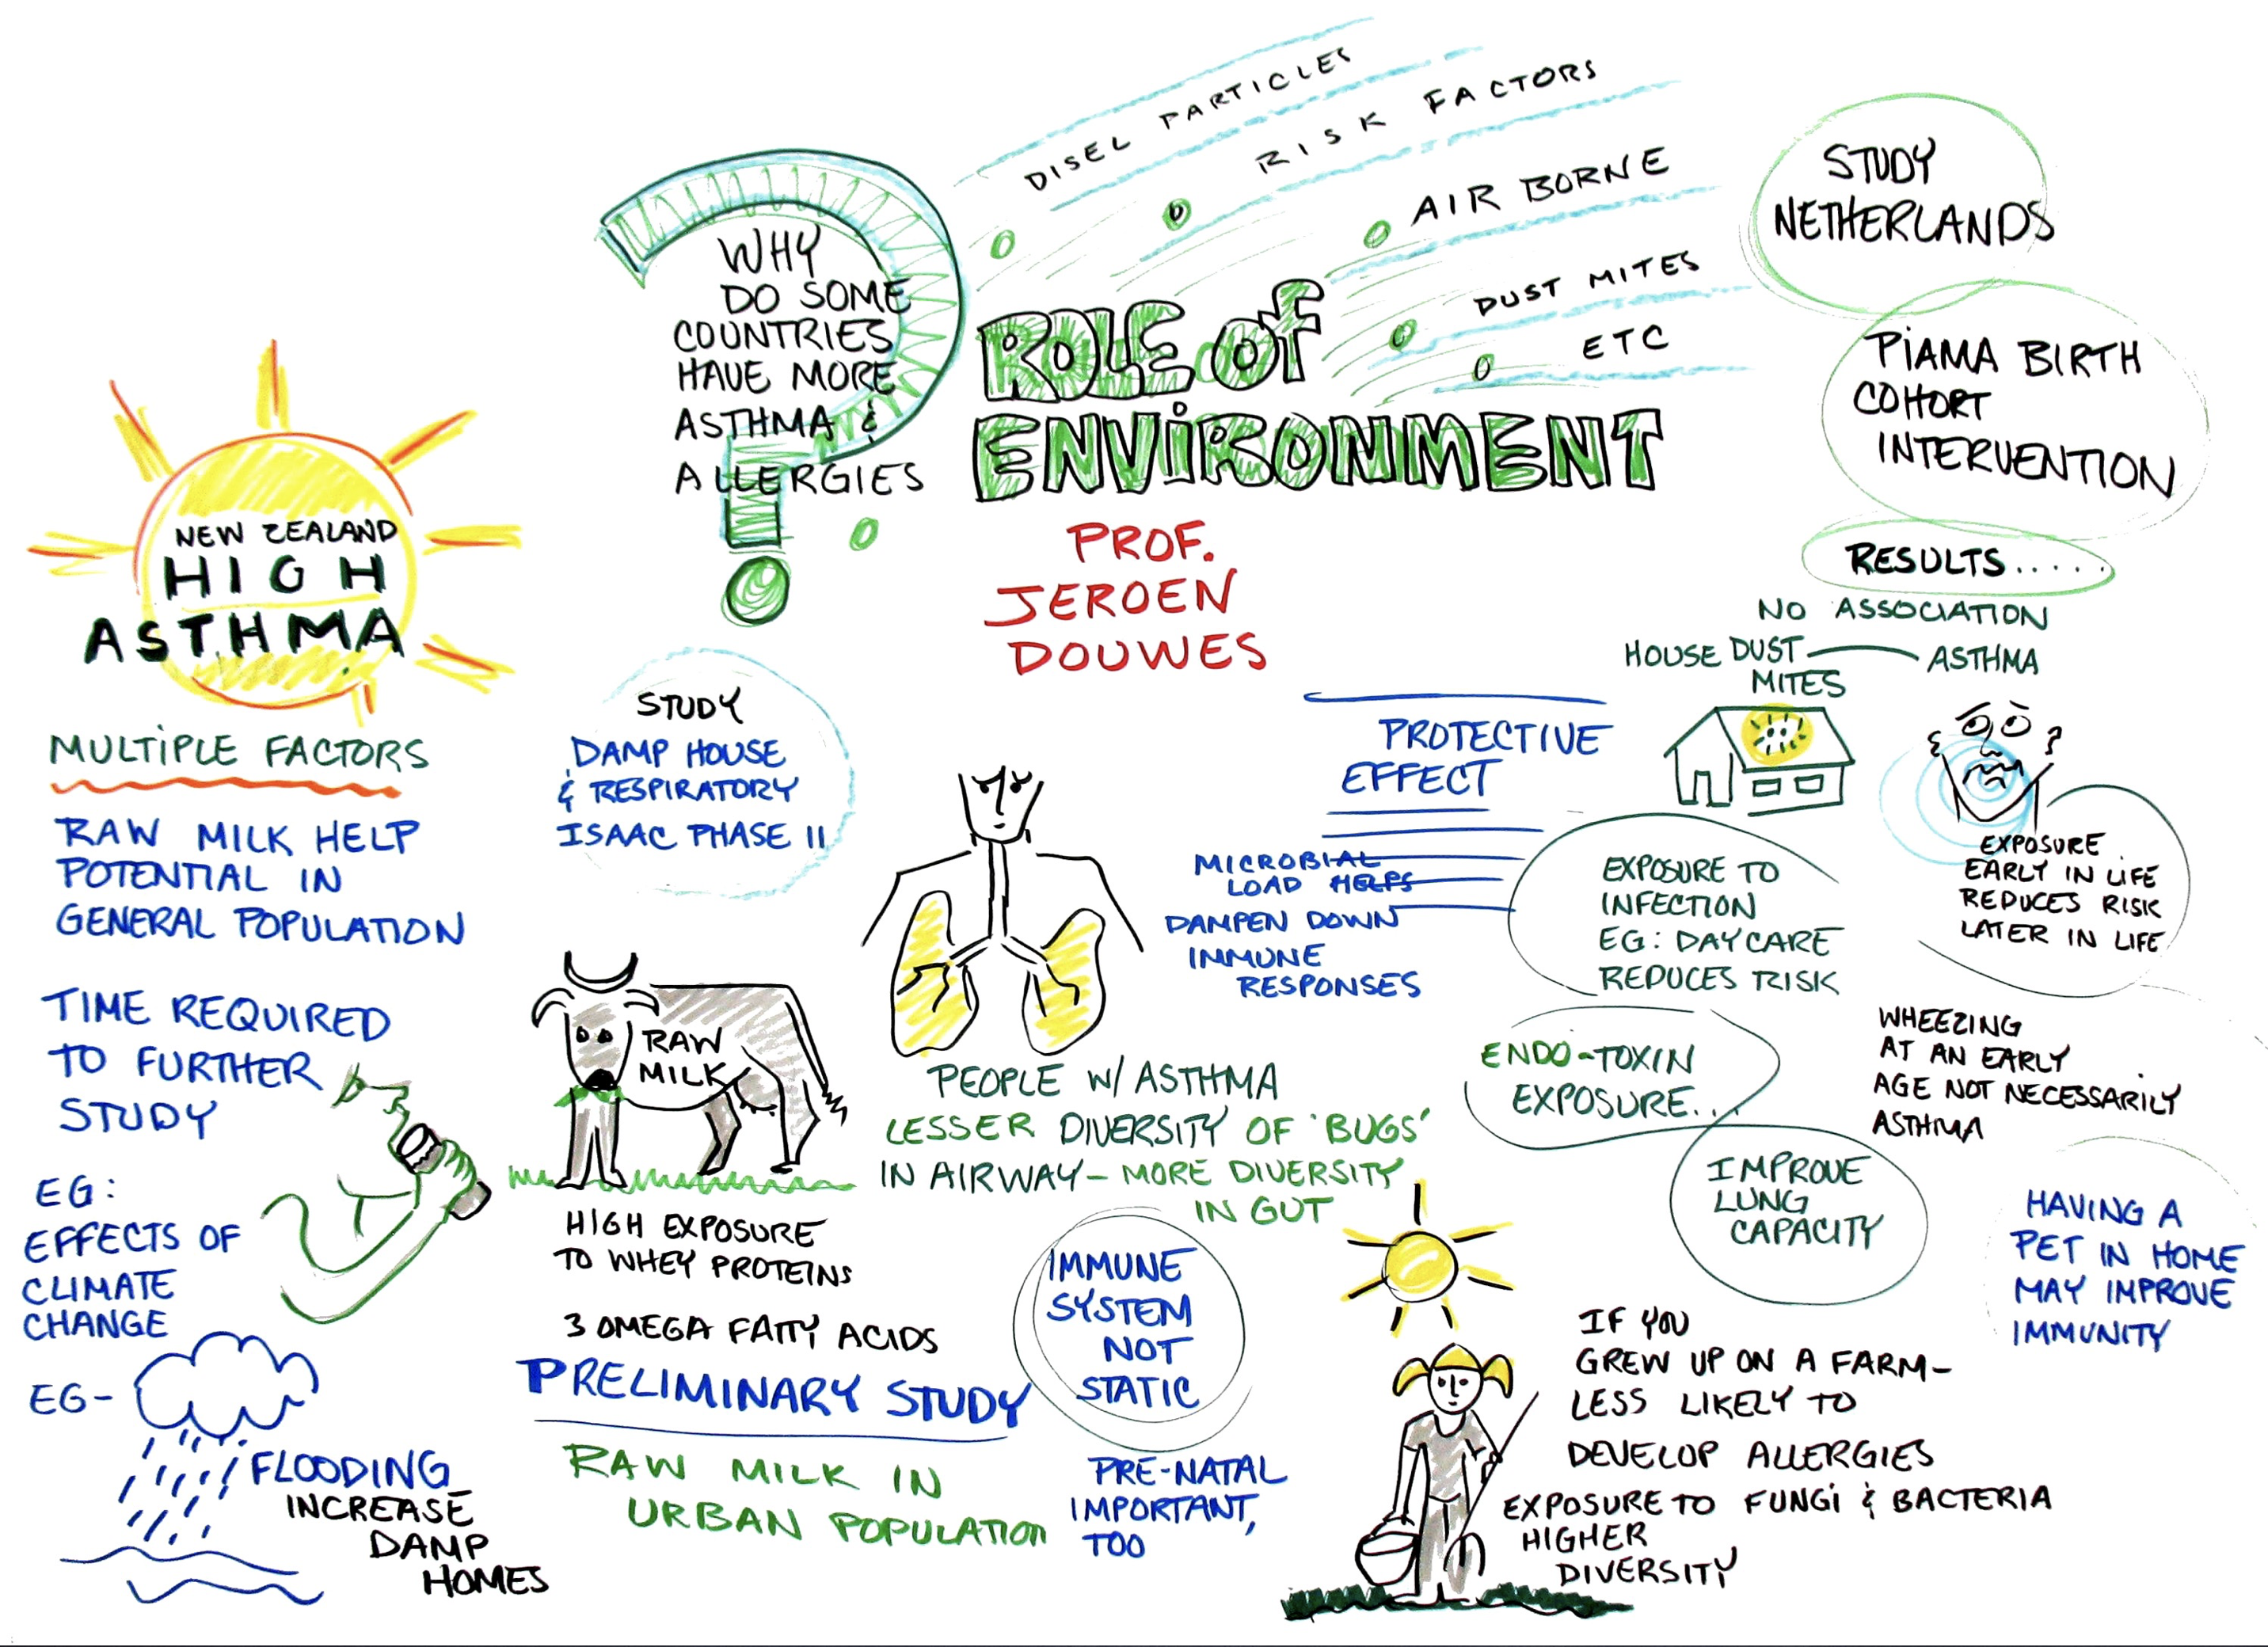 DISEL PARTICLES
RISK FACTORS
AIR BORNE
DUST MITES
ETC
WHY
DO SOME
COUNTRIES
HAVE MORE
ASTHMA &
ALLERGIES
?
ROLE of
ENViRONMENT
PROF.
JEROEN
DOUWES
STUDY
NETHERLANDS
PiAMA BIRTH
COHORT
INTERVENTION
RESULTS.....
NO ASSOCIATION
HOUSE DUST
MITES
ASTHMA
NEW ZEALAND
HIGH
ASTHMA
MULTiPLE FACTORS
RAW MILK HELP
POTENTIAL IN
GENERAL POPULATION
TIME REQUIRED
TO FURTHER
STUDY
EG:
EFFECTS OF
CLIMATE
CHANGE
EG-
FLOODING
INCREASE
DAMP
HOMES
STUDY
DAMP HOUSE
& RESPIRATORY
ISAAC PHASE II
RAW
MILK
HIGH EXPOSURE
TO WHEY PROTEINS
3 OMEGA FATTY ACIDS
PRELIMINARY STUDY
RAW MILK IN
URBAN POPULATION
PEOPLE W/ ASTHMA
LESSER DIVERSITY OF 'BUGS'
IN AIRWAY - MORE DIVERSITY
IN GUT
IMMUNE
SYSTEM
NOT
STATIC
PRE-NATAL
IMPORTANT,
TOO
PROTECTIVE
EFFECT
MICROBIAL
LOAD HELPS
DAMPEN DOWN
IMMUNE
RESPONSES
EXPOSURE TO
INFECTION
EG: DAYCARE
REDUCES RISK
EXPOSURE
EARLY IN LiFE
REDUCES RISK
LATER IN LIFE
ENDO-TOXIN
EXPOSURE...
IMPROVE
LUNG
CAPACITY
WHEEZING
AT AN EARLY
AGE NOT NECESSARILY
ASTHMA
HAVING A
PET IN HOME
MAY IMPROVE
IMMUNITY
IF YOU
GREW UP ON A FARM-
LESS LIKELY TO
DEVELOP ALLERGIES
EXPOSURE TO FUNGi & BACTERIA
HIGHER
DIVERSITY